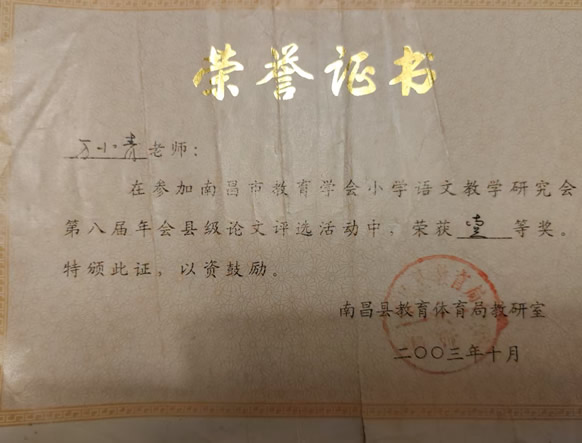 荣誉证书
万小青老师：
在参加南昌市教育学会小学语文教学研究会
第八届年会县级论文评选活动中，荣获壹等奖。
特颁此证，以资鼓励。
南昌县教育体育局教研室
二〇〇三年十月